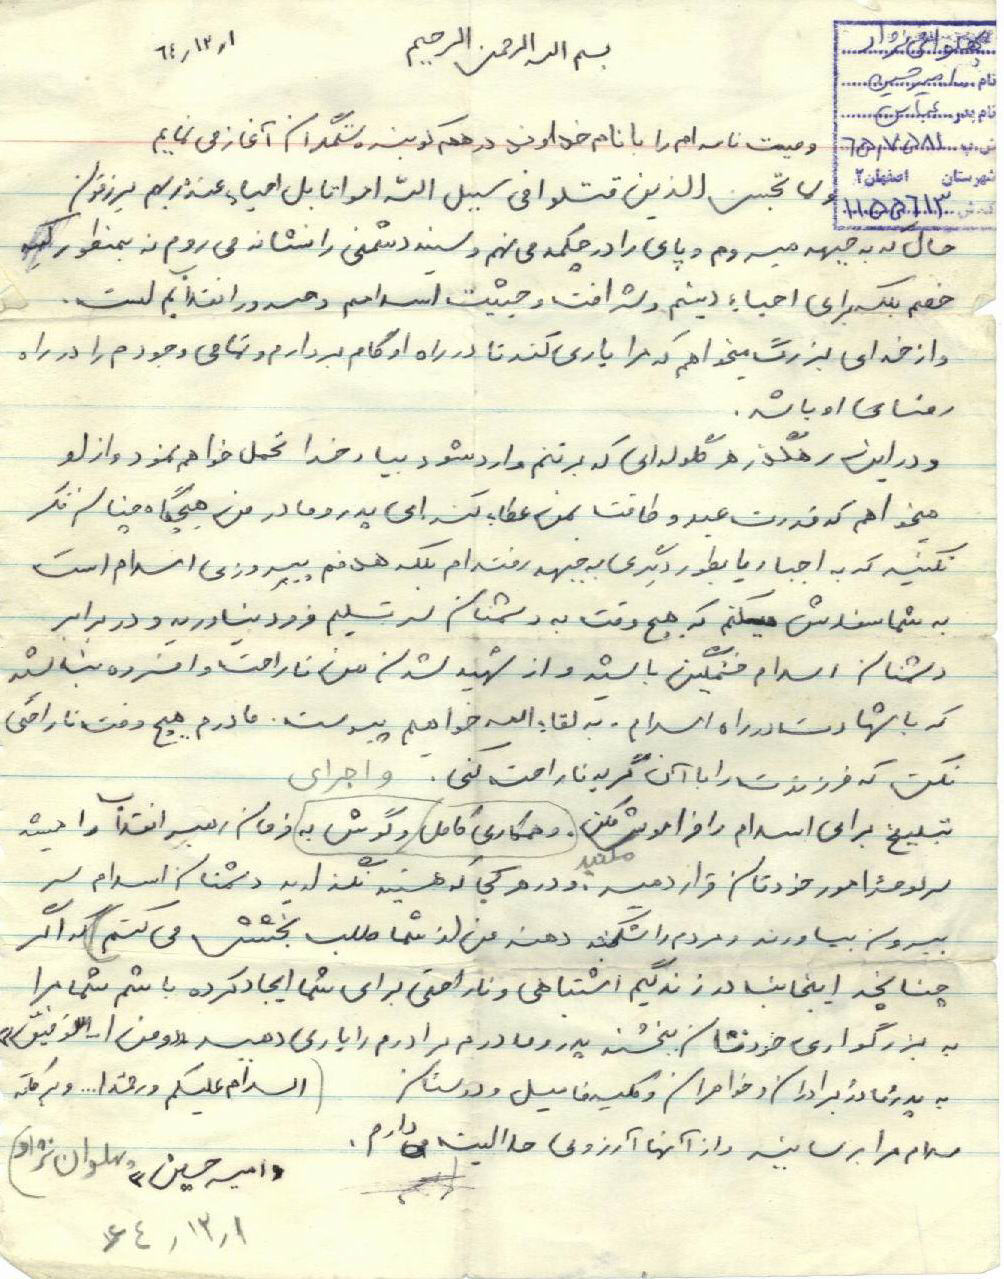 بسم الله الرحمن الرحیم
۶٤/۱۲/۱
پهلوانی نژاد
نام امیرحسین
نام پدر عباس
ش.پ
شهرستان اصفهان ۲
کد ش ۱۱۵۵۶۱۳
وصیت نامه ام را با نام خداوند در هم کوبنده ستمگران آغاز می نمایم
ولا تحسبن الذین قتلوا فی سبیل الله امواتا بل احیاء عند ربهم یرزقون
حال که به جبهه میروم و پای را در چکمه می نهم و سینه دشمنی را نشانه می روم نه بمنظور کینه
خصم بلکه برای احیاء دینم و شرافت و حیثیت اسلامم و انقلابم است.
و از خدای بزرگ میخواهم که مرا یاری کند تا در راه او گام بردارم و تمامی وجودم را در راه
رضای او باشد.
و در این رهگذر هر گلوله ای که بر تنم وارد شود بیاد خدا تحمل خواهم نمود و از او
میخواهم که قدرت و طاقت بمن عطاء کند ای پدر و مادر من هیچگاه چنان فکر
نکنید که به اجبار یا بطور دیگری به جبهه رفته ام بلکه هدفم پیروزی اسلام است
به شما سفارش میکنم که هیچ وقت به دشمنان سر تسلیم فرود نیاورید و در برابر
دشمنان اسلام خشمگین باشید و از شهید شدن من ناراحت و افسرده نباشید
که با شهادت در راه اسلام به لقاء الله خواهیم پیوست. مادرم هیچ وقت ناراحتی
نکن که فرزندت را با آن گریه ناراحت کنی. و اجرای
تبلیغ برای اسلام را فراموش مکن. و همکاری کامل و گوش به فرمان رهبر انقلاب را همیشه
مکنید
سرلوحۀ امور خودتان قرار دهید. و در هر کجا که هستید نگذارید دشمنان اسلام سر
بیرون بیاورند و مردم را شکنجه دهند من از شما طلب بخشش می کنم که اگر
چنانچه اینجانب در زندگیم اشتباهی و ناراحتی برای شما ایجاد کرده باشم شما مرا
به بزرگواری خودتان ببخشید پدر و مادرم برادرم را یاری دهید «و من الله توفیق»
به پدر و مادر برادران و خواهران و کلیه فامیل و دوستان
السلام علیکم و رحمة ا... و برکاته
سلام مرا برسانید و از آنها آرزوی حلالیت می دارم.
«امیر حسین» پهلوان نژاد
۶٤/۱۲/۱